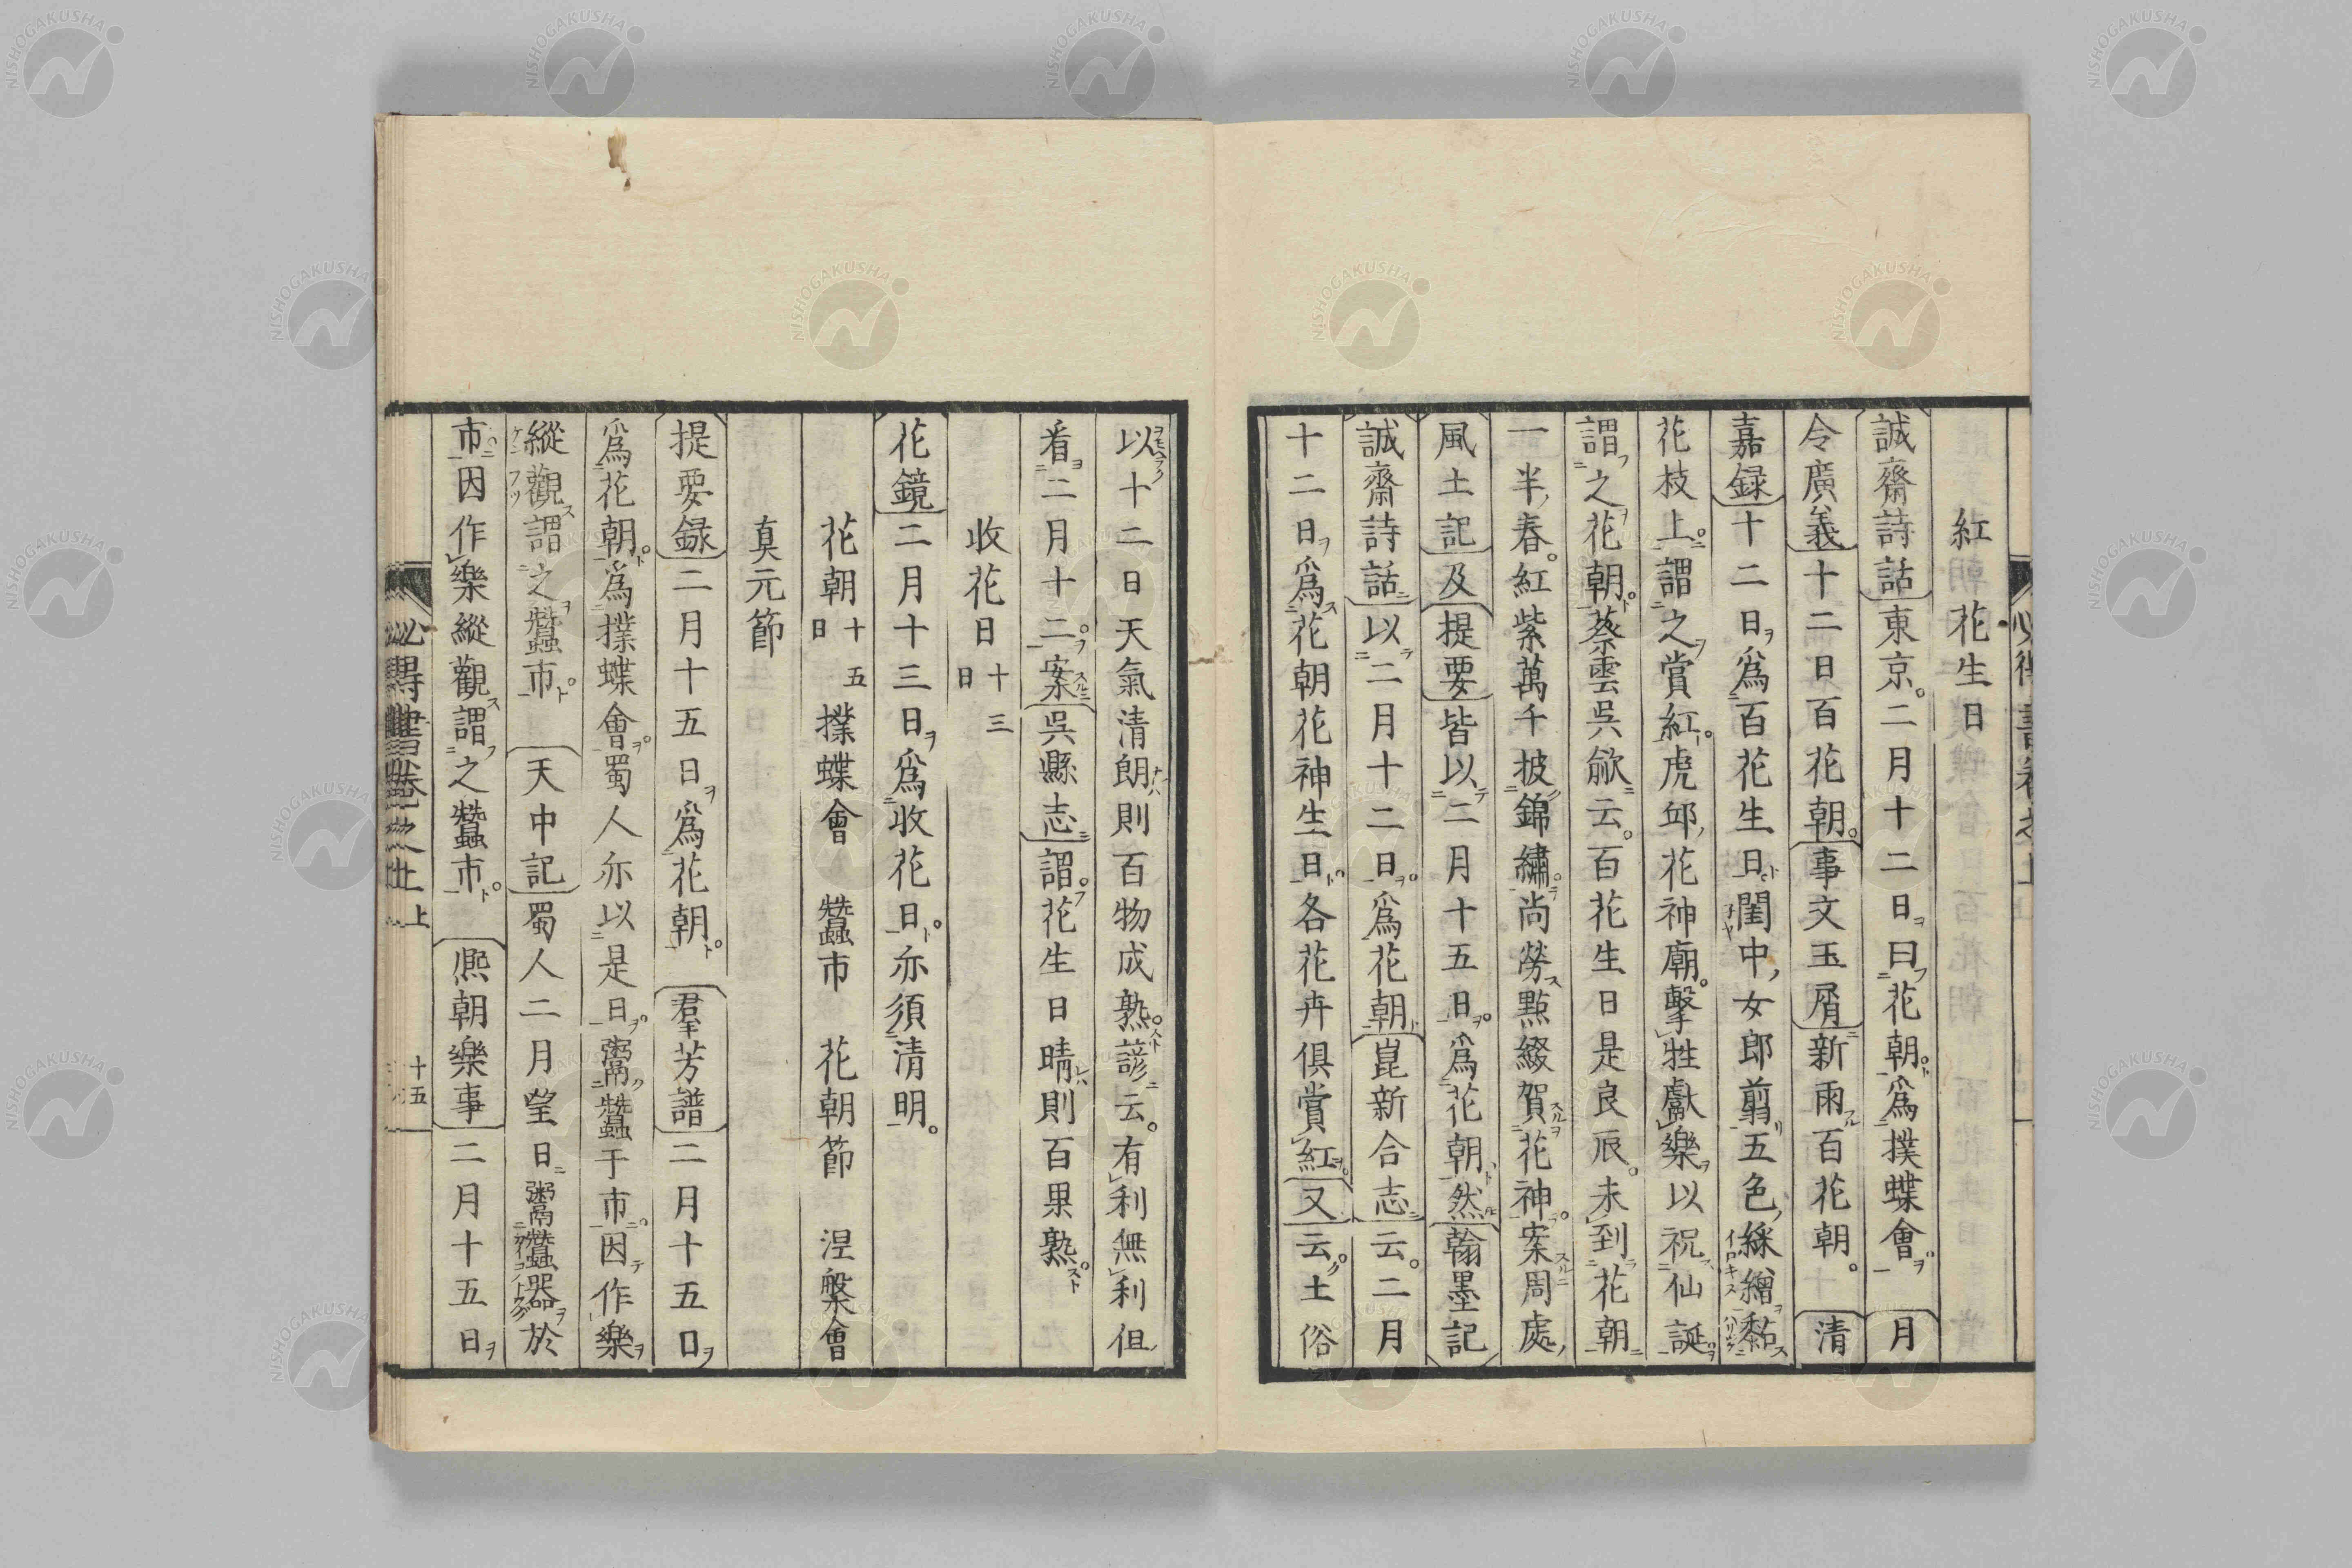 紅　花生日
誠齋詩話東京二月十二日曰花朝爲撲蝶會　月
令廣義十二日百花朝事文玉屑新雨百花朝　清
嘉録十二日爲百花生日閨中女郎剪五色綵繒黏
花枝上謂之賞紅虎邱花神廟擊牲獻樂以祝仙誕
謂之花朝蔡雲吳歈云百花生日是良辰未到花朝
一半春紅紫萬千披錦繡尚勞點綴賀花神案周處
風土記及提要皆以二月十五日爲花朝然翰墨記
誠齋詩話以二月十二日爲花朝崑新合志云二月
十二日爲花朝花神生日各花卉俱賞紅又云土俗
以十二日天氣清朗則百物成熟諺云有利無利但
看二月十二案吳縣志謂花生日晴則百果熟
收花日十三日
花鏡二月十三日爲收花日亦須清明
花朝十五日　撲蝶會　蠶市　花朝節　涅槃會
真元節
提要録二月十五日爲花朝　羣芳譜二月十五日
爲花朝爲撲蝶會蜀人亦以是日鬻蠶于市因作樂
縱觀謂之蠶市　天中記蜀人二月望日鬻蠶器於
市因作樂縱觀謂之蠶市　熈朝樂事二月十五日
卷之上　上　十五